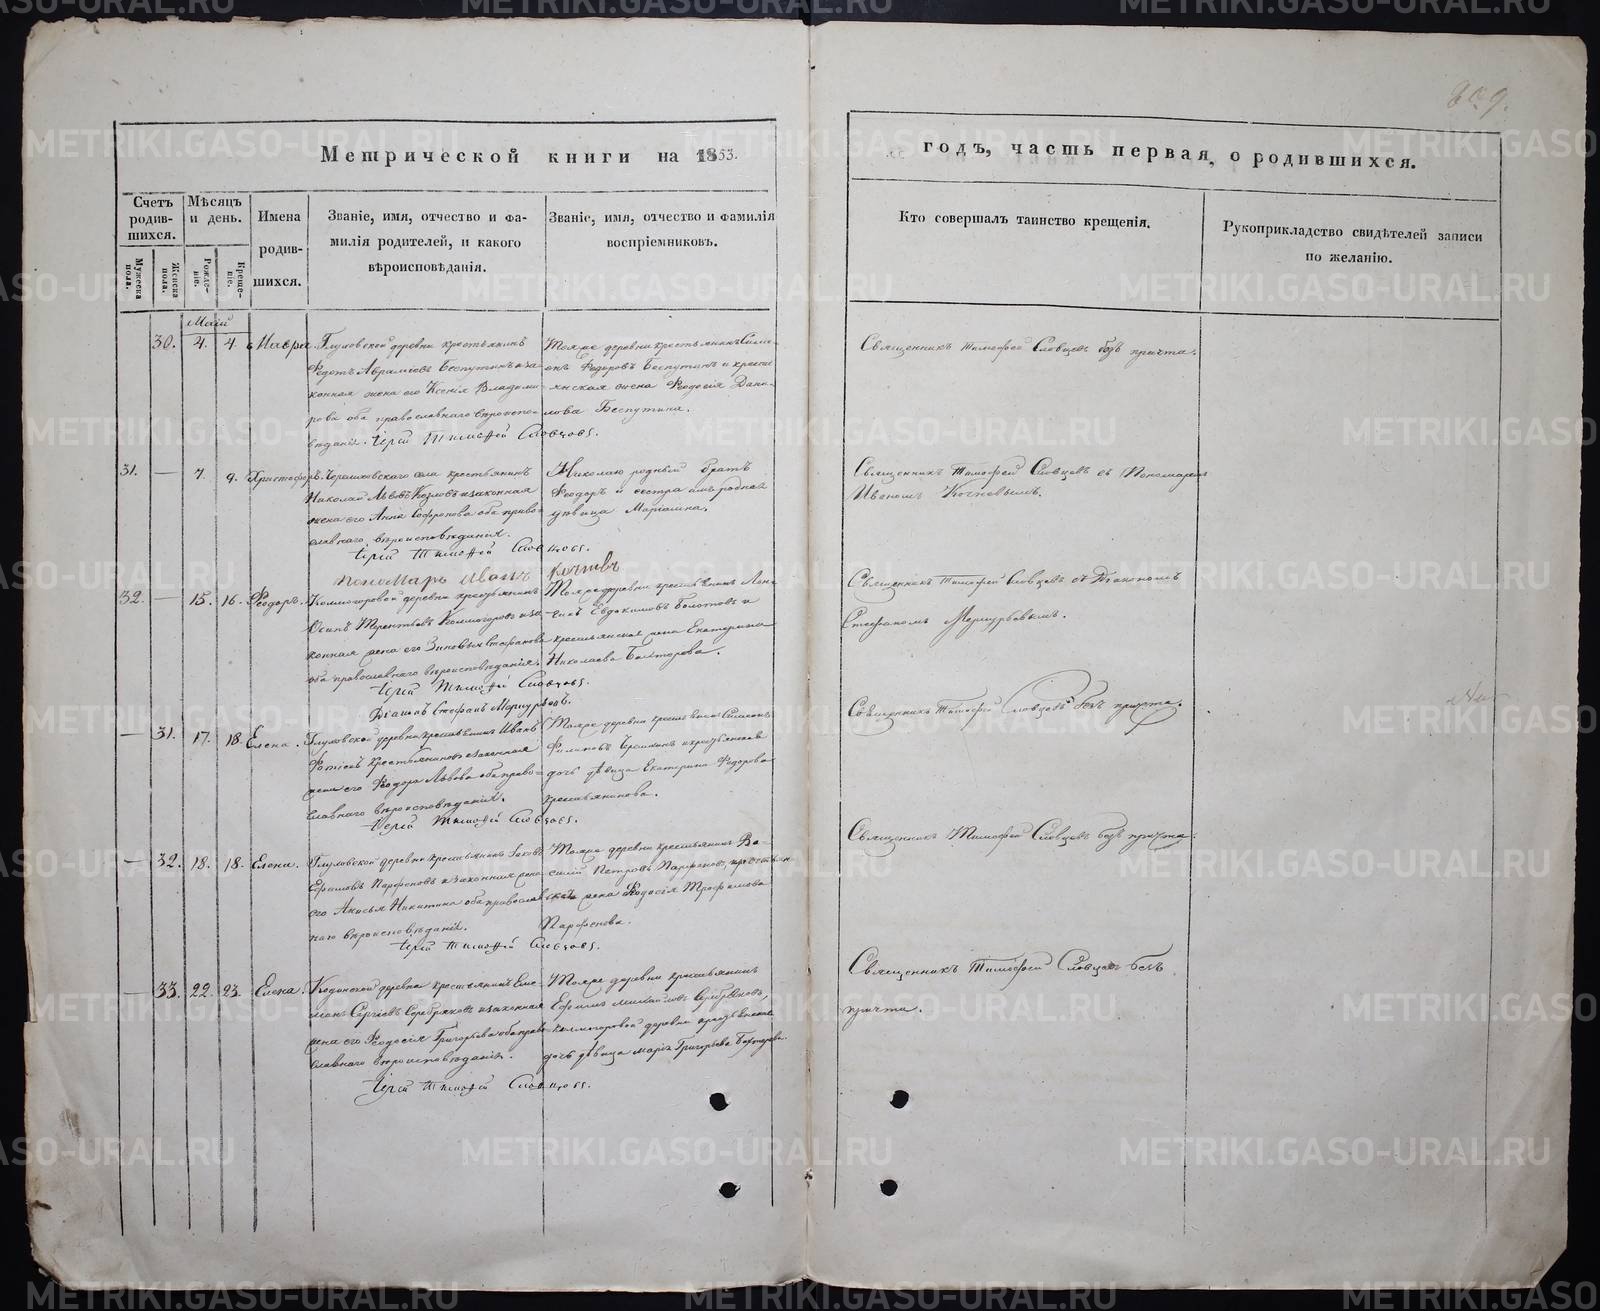 Метрической книги на 1853.
годъ, часть первая, о родившихся.
Счетъ родив-шихся.
Мужеска пола.
Женска пола.
Мѣсяцъ и день.
Рожде-ніе.
Креще-ніе.
Имена родив-шихся.
Званіе, имя, отчество и фа-
милія родителей, и какого
вѣроисповѣданія.
Званіе, имя, отчество и фамилія
воспріемниковъ.
Кто совершалъ таинство крещенія.
Рукоприкладство свидѣтелей записи
по желанію.
Маій
30. 4. 4. Мавра
Глуховской деревни крестьянинъ
Федотъ Авраміевъ Беспутинъ и за-
конная жена его Ксенія Владими-
рова оба православнаго вѣроиспо-
вѣданія. Іерей Тимофей Словцовъ.
Тояже деревни крестьянинъ Симе-
онъ Федоровъ Беспутинъ и кресть-
янская жена Феодосія Дани-
лова Беспутина.
Священникъ Тимофей Словцевъ безъ причта.
31. — 7. 9. Христофоръ.
села крестьянинъ
Николай Львовъ Козловъ и законная
жена его Анна Софронова оба право-
славнаго вѣроисповѣданія.
Іерей Тимофей Словцовъ.
Пономарь Иванъ
Николаю родный братъ
Феодоръ и сестра имъ родная
дѣвица Маріамна.
Священникъ Тимофей Словцевъ съ Пономаремъ
Иваномъ
32. — 15. 16. Феодоръ.
Колмогоровой деревни крестьянинъ
Осипъ Терентьевъ Колмогоровъ и за-
конная жена его Зиновья Стефанова
оба православнаго вѣроисповѣданія.
Іерей Тимофей Словцовъ.
Діаконъ Стефанъ Меркурьевъ.
Тояже деревни крестьянинъ Леон-
тій Евдокимовъ и
крестьянская жена Екатерина
Николаева
Священникъ Тимофей Словцевъ съ Діакономъ
Стефаномъ Меркурьевымъ.
— 31. 17. 18. Елена.
Глуховской деревни крестьянинъ Иванъ
Фотіевъ Крестьяниновъ и законная
жена его Феодора Львова оба право-
славнаго вѣроисповѣданія.
Іерей Тимофей Словцовъ.
Тояже деревни крестьянинъ Симеонъ
Филиповъ и крестьянская
дочь дѣвица Екатерина Федорова
Крестьянинова.
Священникъ Тимофей Словцевъ безъ причта.
— 32. 18. 18. Елена.
Глуховской деревни крестьянинъ Іаковъ
Ефимовъ Парфеновъ и законная жена
его Акилина Никитина оба православ-
наго вѣроисповѣданія.
Іерей Тимофей Словцовъ.
Тояже деревни крестьянинъ Ва-
силій Петровъ Парфеновъ, и крестьян-
ская жена Феодосія Трофимова
Парфенова.
Священникъ Тимофей Словцевъ безъ причта.
— 33. 22. 23. Елена.
Кодинской деревни крестьянинъ Сим-
еонъ Сергіевъ Серебряковъ и законная
жена его Феодосія Григорьева оба право-
славнаго вѣроисповѣданія.
Іерей Тимофей Словцовъ.
Тояже деревни крестьянинъ
Ефимъ Михайловъ Серебряковъ,
Колмогоровой деревни крестьянская
дочь дѣвица Марія Григорьева
Священникъ Тимофей Словцевъ безъ
причта.
METRIKI.GASO-URAL.RU